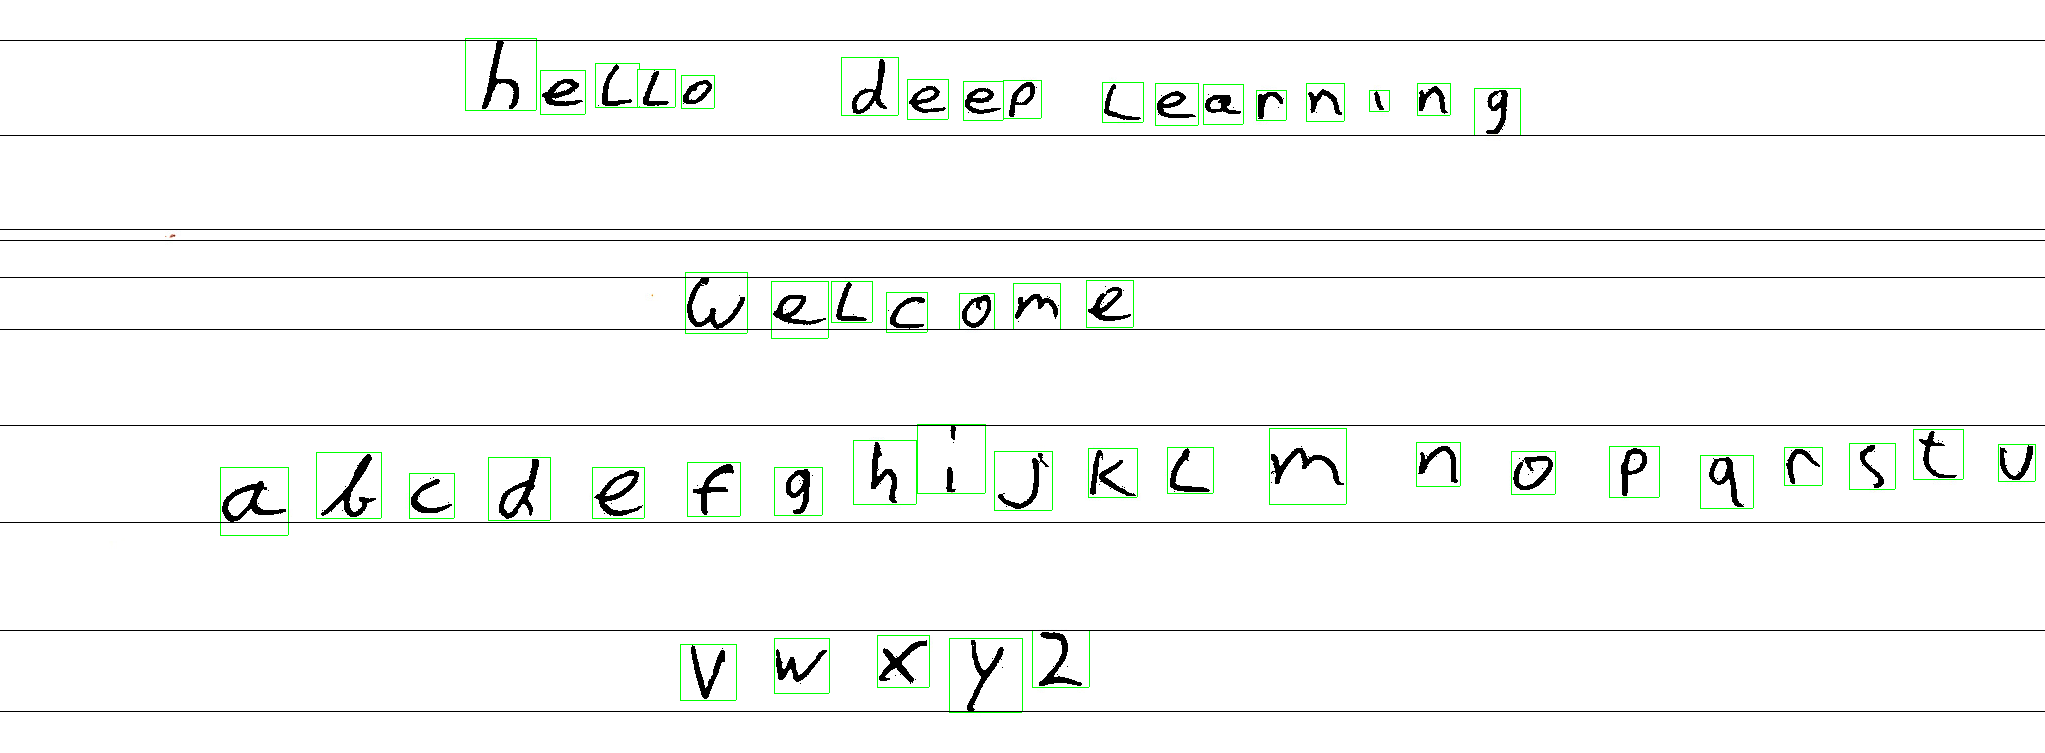 heLLo deep Learning
WeLcome
a b c d e f g h i j k L m n o p q r s t u
v w x y z